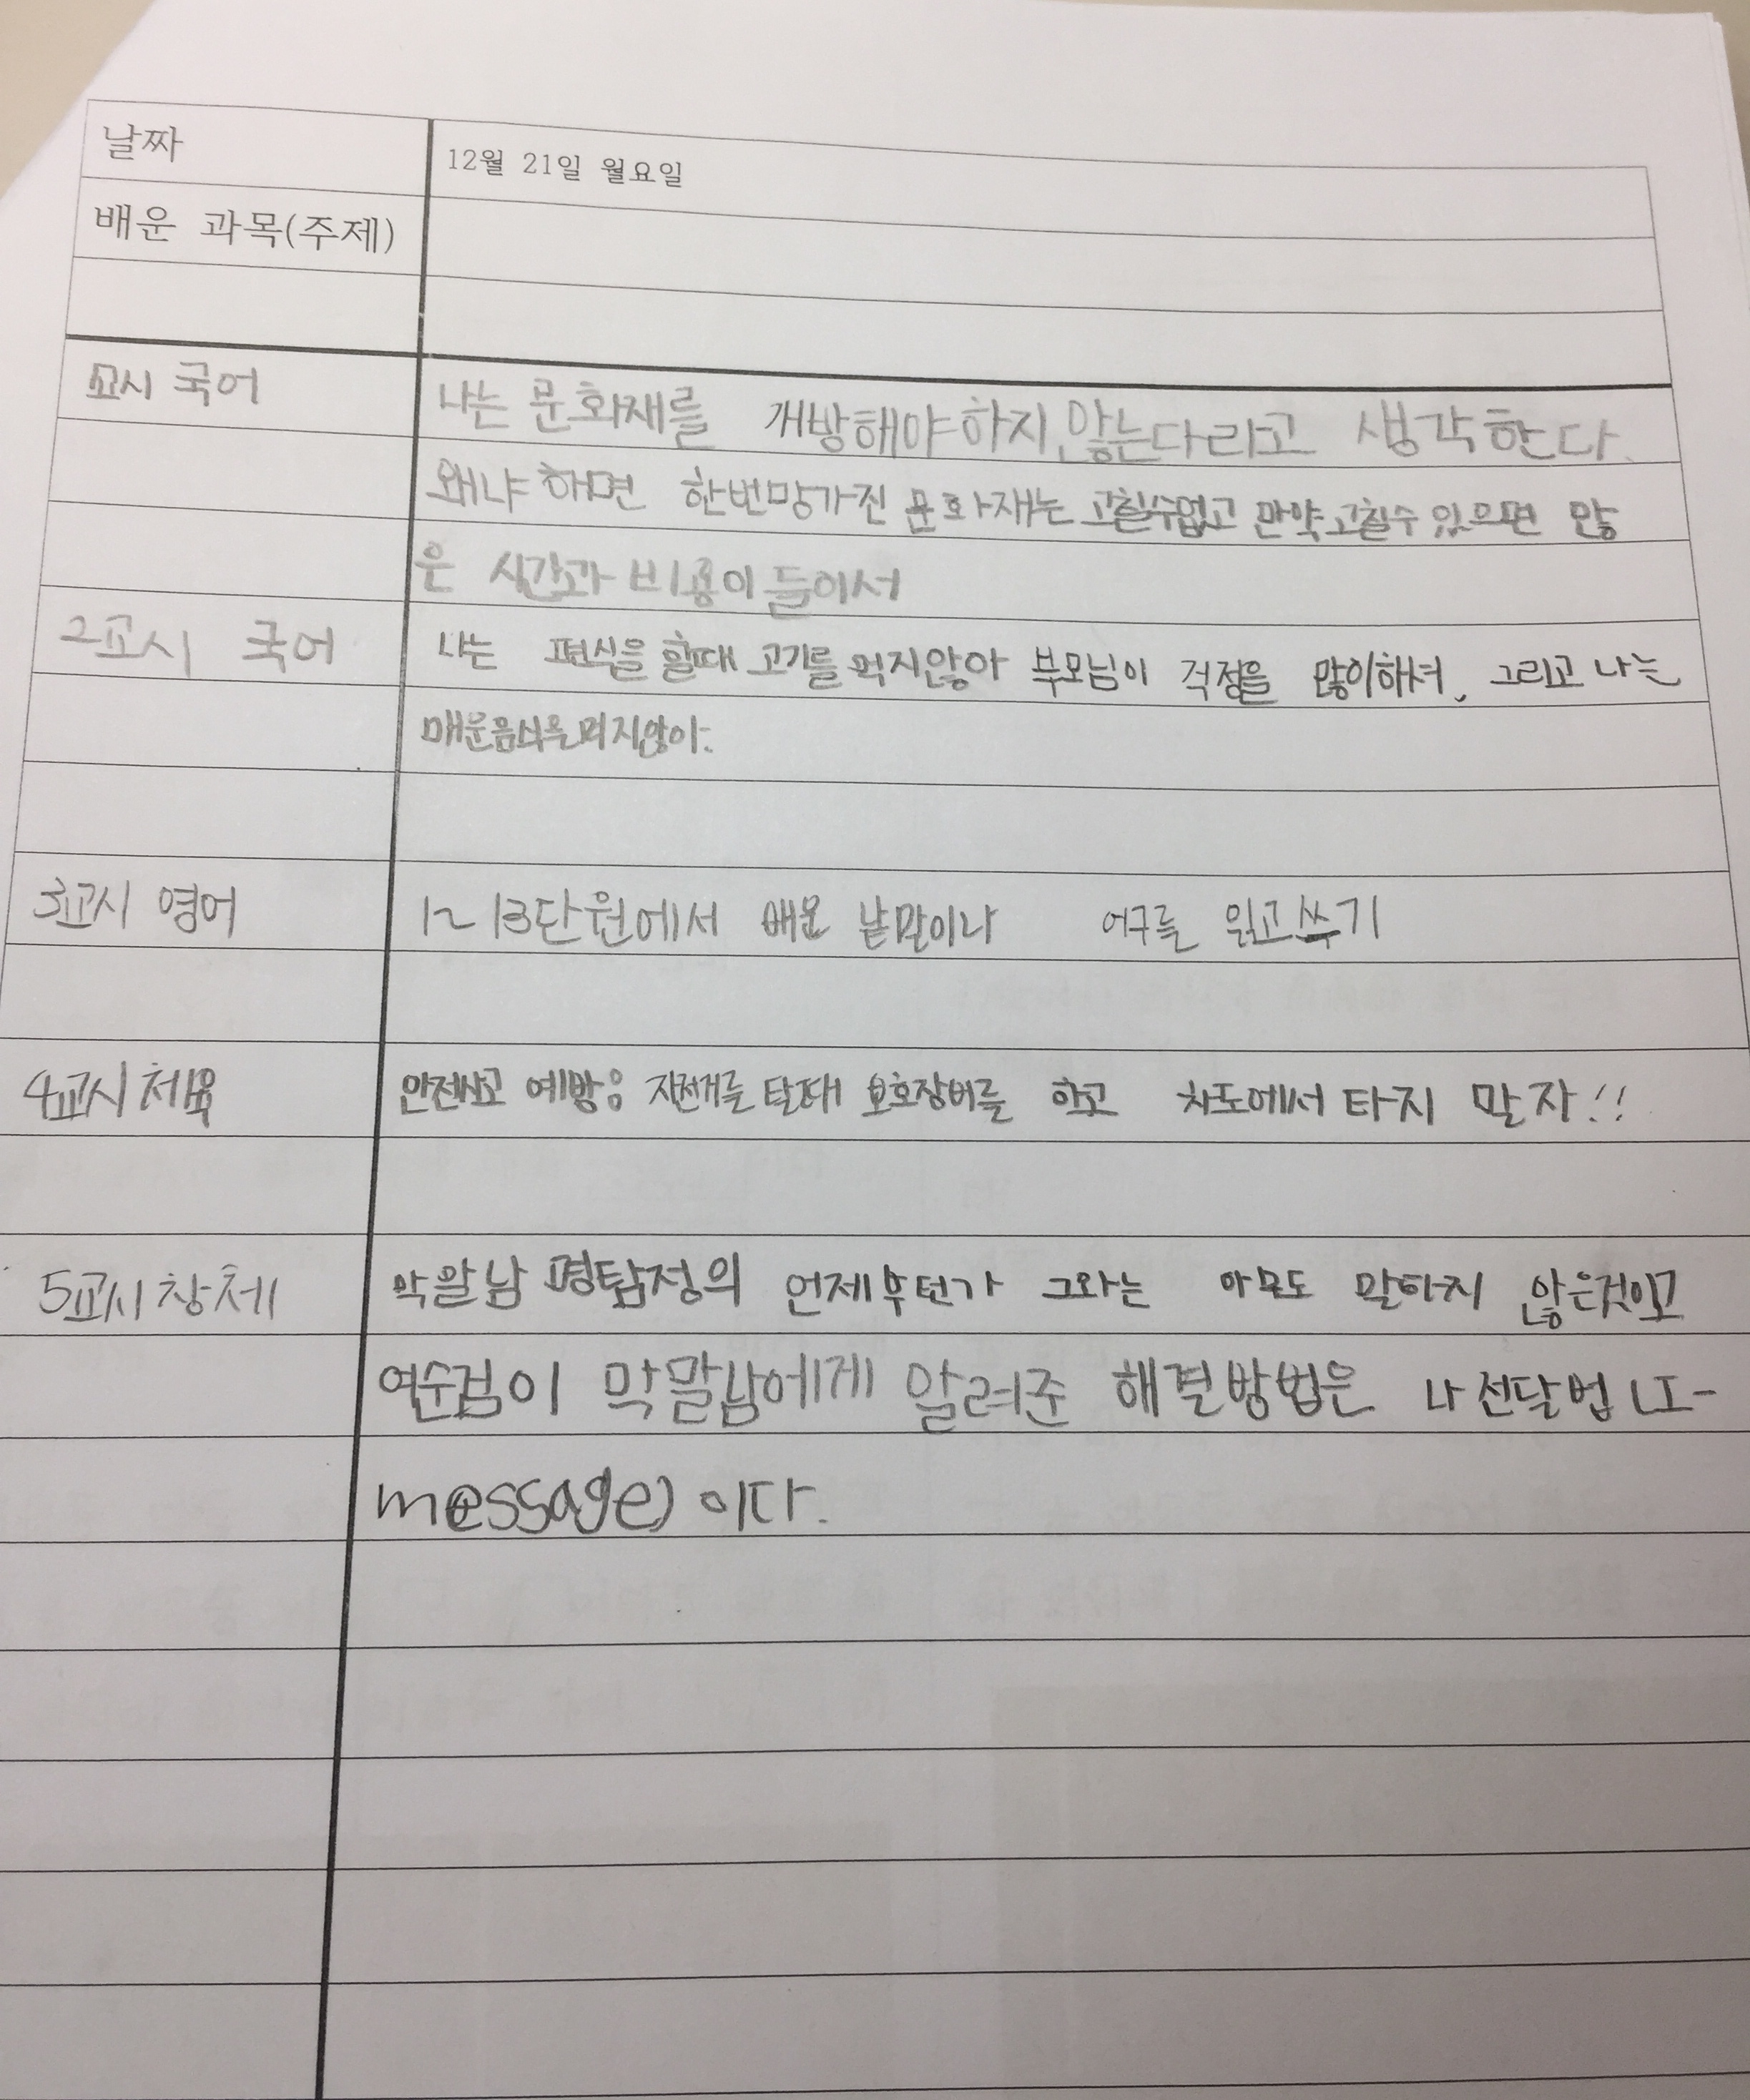 날짜 12월 21일 월요일
배운 과목(주제)
교시 국어 나는 문화재를 개방해야하지 않는다리고 생각한다.
왜냐 하면 한번망가진 문화재는 고칠수없고 만약고칠수 있으면 많
은 시간과 비용이 들어서
2교시 국어 나는 편식을 할때 고기를 먹지않아 부모님이 걱정을 많이하셔. 그리고 나는
매운음식을먹지않아.
3교시 영어 12~13단원에서 배운 낱말이나 어구를 읽고쓰기
4교시 체육 안전사고 예방: 자전거를 탈때 보호장비를 하고 차도에서 타지 말자!!
5교시 창체 막말남 명탐정의 언제부턴가 그와는 아무도 말하지 않은것이고
이 막말남에게 알려준 해결방법은 나 전달법 (I-
message) 이다.